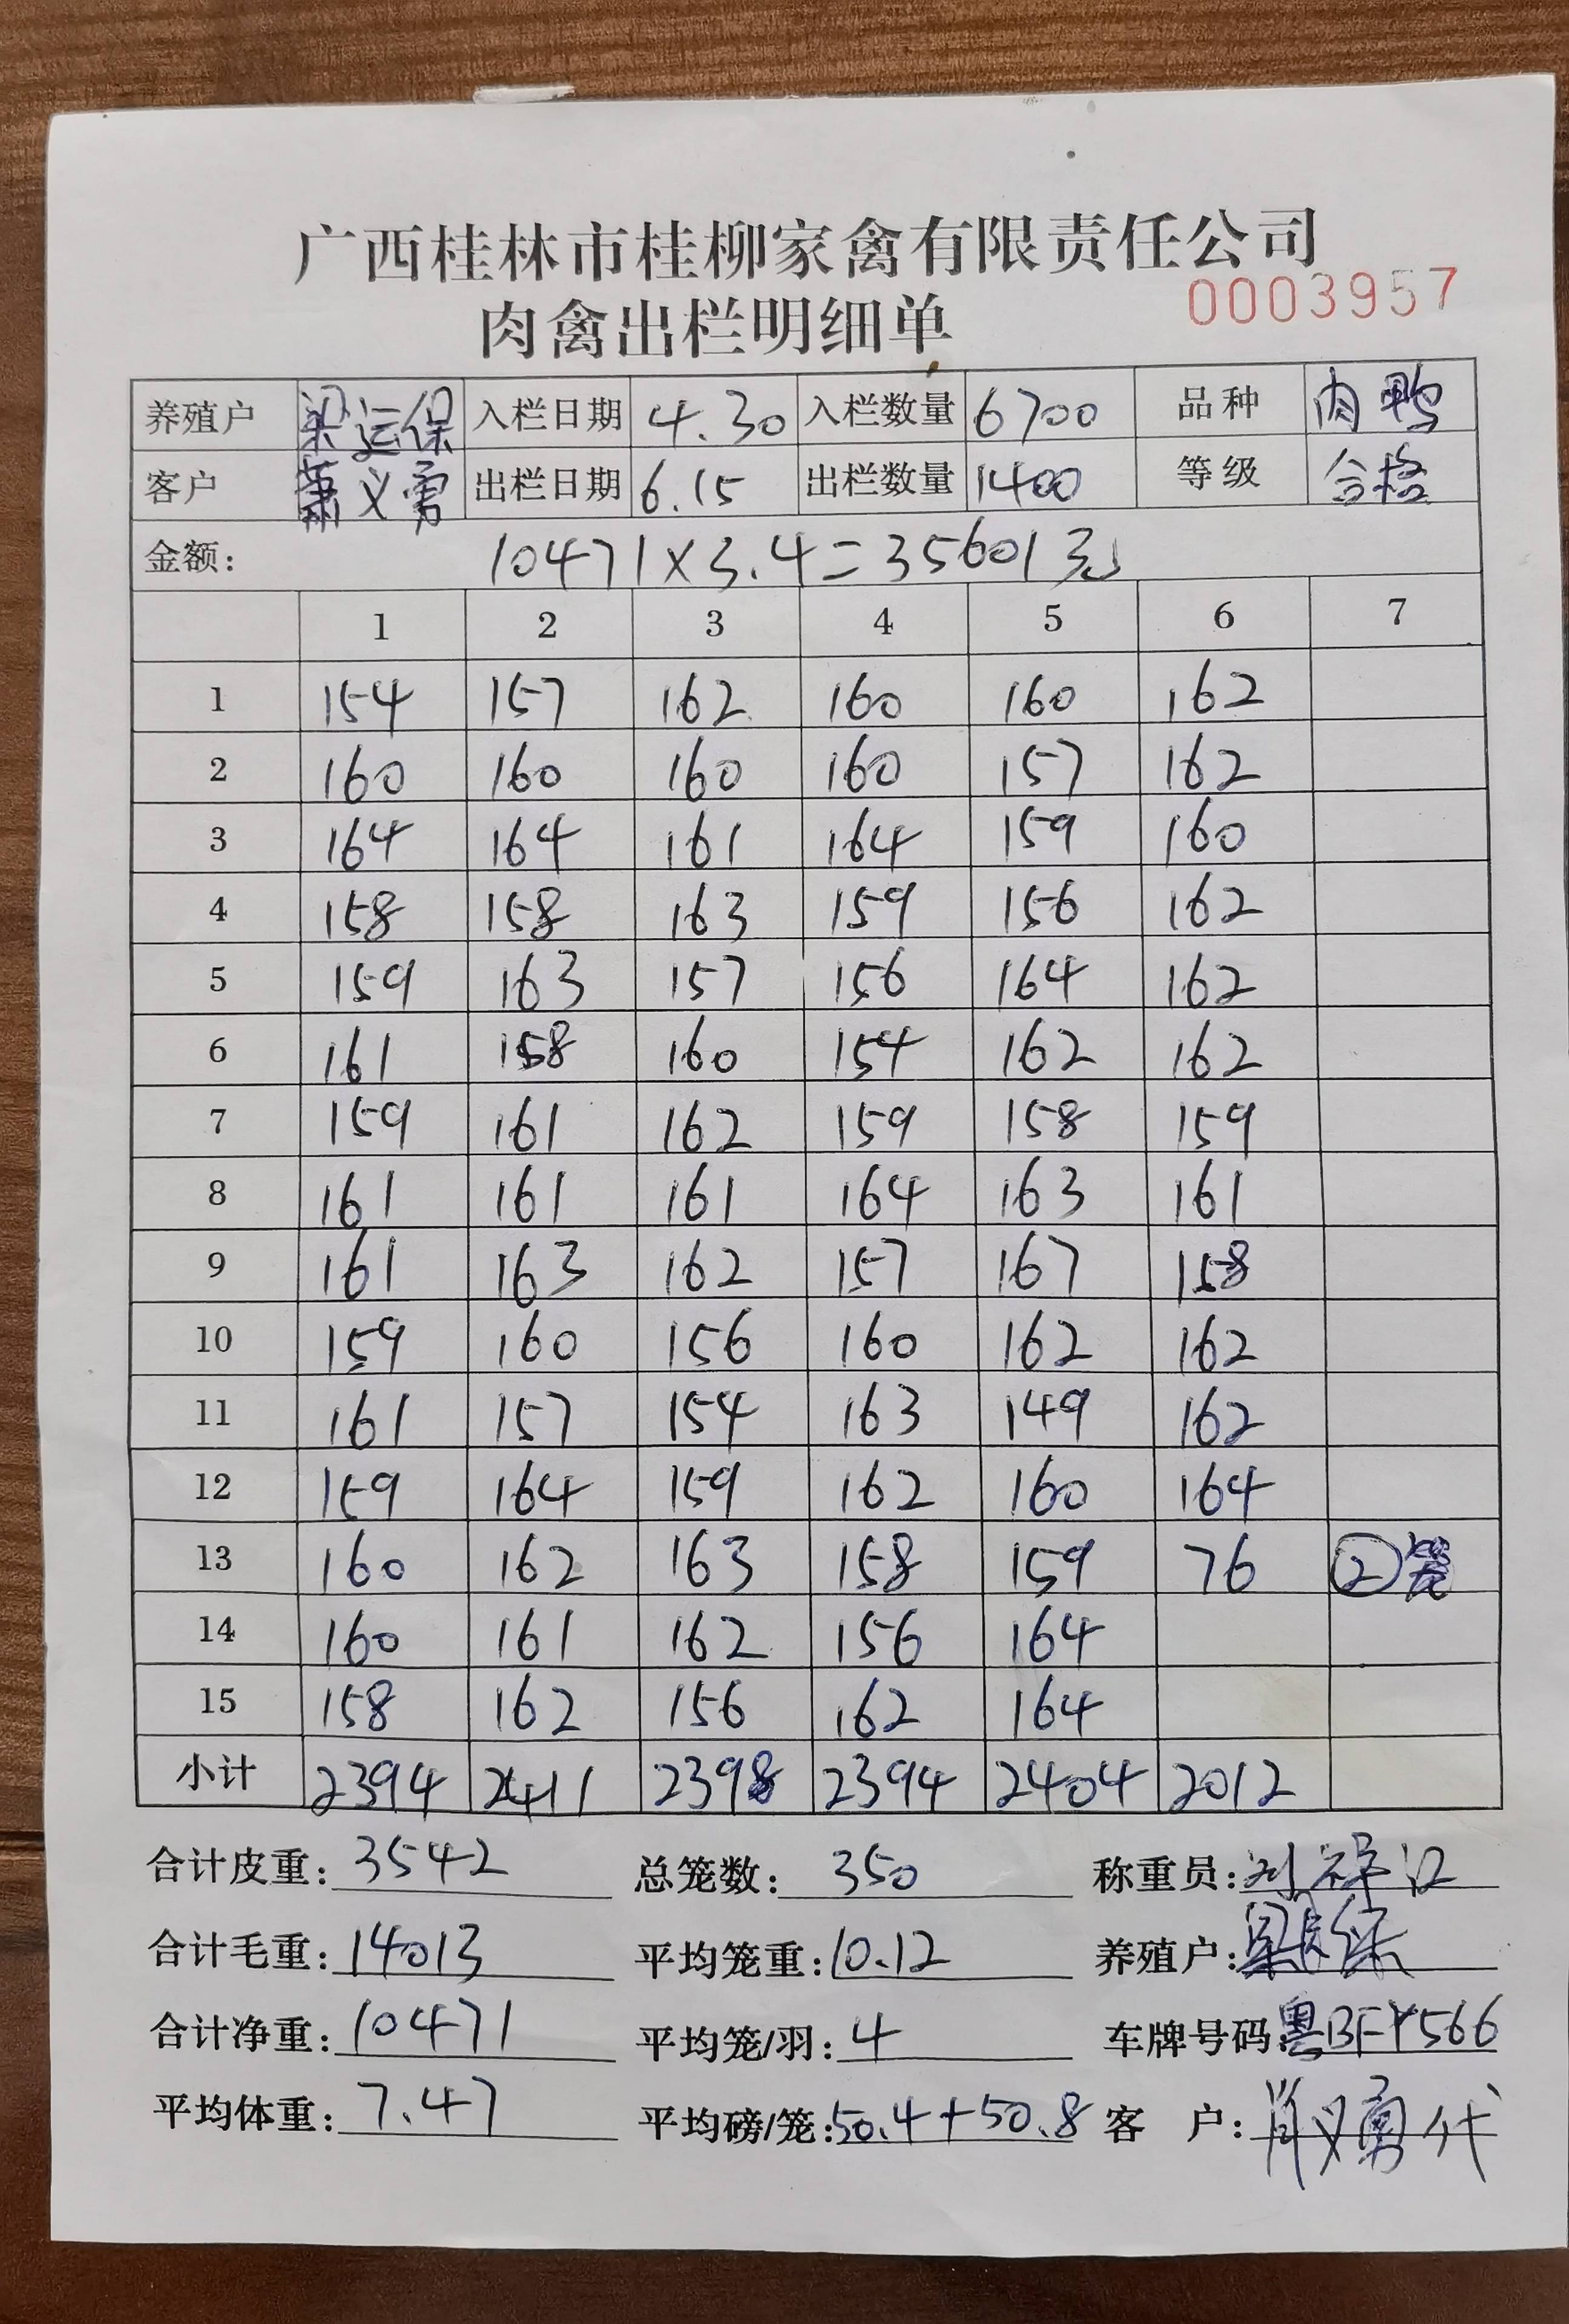 广西桂林市桂柳家禽有限责任公司
肉禽出栏明细单 0003957
养殖户 梁运保 入栏日期 4.30 入栏数量 6700 品种 肉鸭
客户 萧义勇 出栏日期 6.15 出栏数量 1400 等级 合格
金额: 10471×3.4=35601元
1 2 3 4 5 6 7
1 154 157 162 160 160 162
2 160 160 160 160 157 162
3 164 164 161 164 159 160
4 158 158 163 159 156 162
5 159 163 157 156 164 162
6 161 158 160 154 162 162
7 159 161 162 159 158 159
8 161 161 161 164 163 161
9 161 163 162 157 167 158
10 159 160 156 160 162 162
11 161 157 154 163 149 162
12 159 164 159 162 160 164
13 160 162 163 158 159 76 ②笼
14 160 161 162 156 164
15 158 162 156 162 164
小计 2394 2411 2398 2394 2404 2012
合计皮重: 3542 总笼数: 350 称重员: 刘祥江
合计毛重: 14013 平均笼重: 10.12 养殖户:
合计净重: 10471 平均笼/羽: 4 车牌号码: 粤BFY566
平均体重: 7.47 平均磅/笼: 50.4+50.8 客 户: 肖义勇代